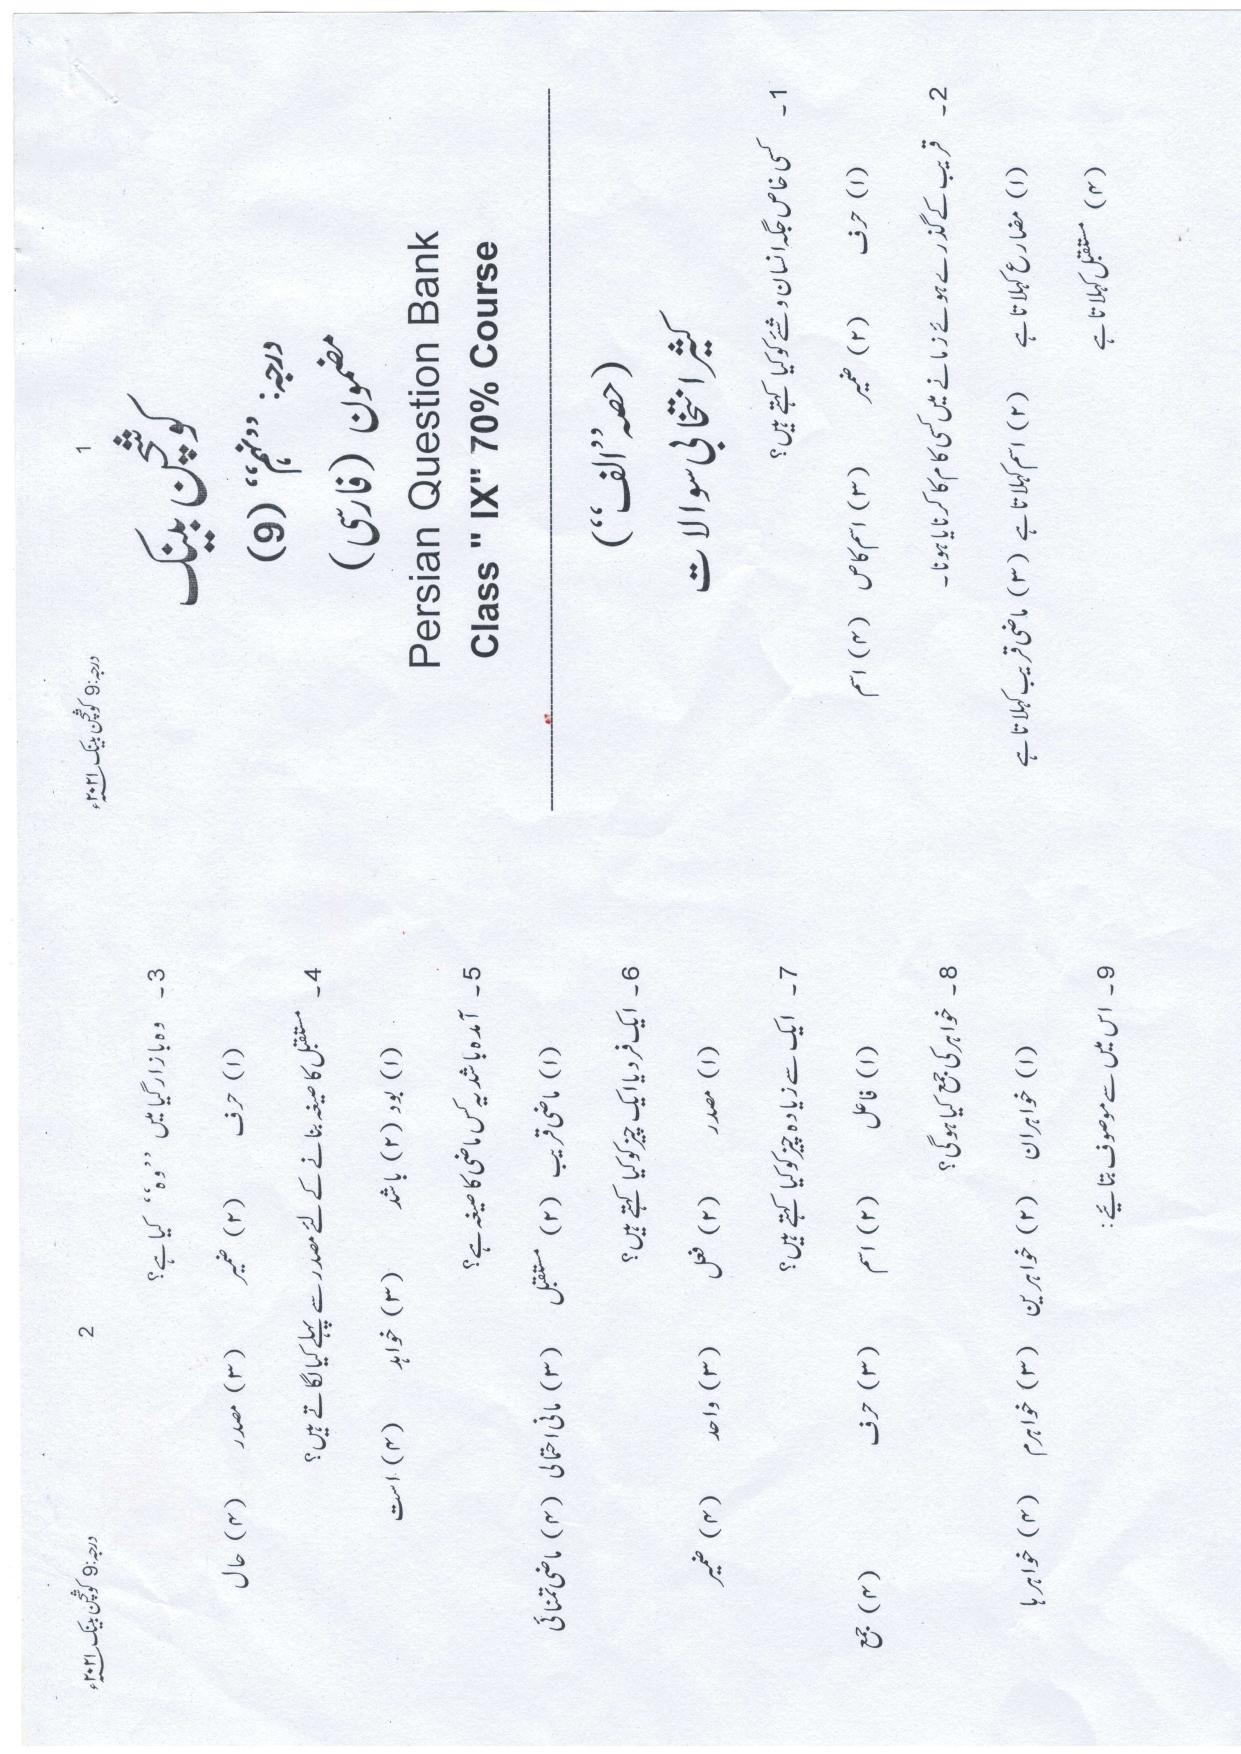 1
درجہ:9 کوئچن بینک ۲۰۲۱ء
کوئچن بینک
درجہ: ”نہم“ (9)
مضمون (فارسی)
Persian Question Bank
Class " IX" 70% Course
(حصہ ”الف“)
کثیر انتخابی سوالات
1۔ کسی خاص جگہ انسان و شئے کو کیا کہتے ہیں؟
(۱) حرف (۲) ضمیر (۳) اسم کاص (۴) اسم
2۔ قریب کے گذرے ہوئے زمانے میں کسی کام کا کرنا یا ہونا۔
(۱) مضارع کہلاتا ہے (۲) اسم کہلاتا ہے (۳) ماضی قریب کہلاتا ہے
(۴) مستقبل کہلاتا ہے
2
درجہ:9 کوئچن بینک ۲۰۲۱ء
3۔ وہ بازار گیا میں ”وہ“ کیا ہے؟
(۱) حرف (۲) ضمیر (۳) مصدر (۴) حال
4۔ مستقبل کا صیغہ بنانے کے لئے مصدر سے پہلے کیا لگاتے ہیں؟
(۱) بود (۲) باشد (۳) خواہد (۴) است
5۔ آمدہ باشد یہ کس ماضی کا صیغہ ہے؟
(۱) ماضی قریب (۲) مستقبل (۳) مانی احتمالی (۴) ماضی تمنائی
6۔ ایک فرد یا ایک چیز کو کیا کہتے ہیں؟
(۱) مصدر (۲) فعل (۳) واحد (۴) ضمیر
7۔ ایک سے زیادہ چیز کو کیا کہتے ہیں؟
(۱) فاعل (۲) اسم (۳) حرف (۴) جمع
8۔ خواہر کی جمع کیا ہوگی؟
(۱) خواہران (۲) خواہرین (۳) خواہرم (۴) خواہر ہا
9۔ اس میں سے موصوف بتایئے: